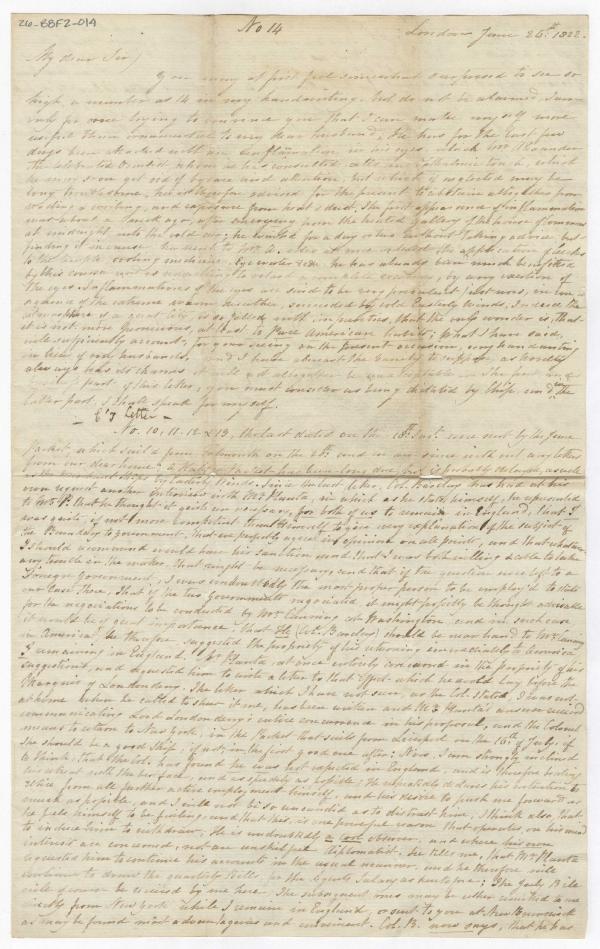 26-BBF2-014
No 14
London June 26th 1822.
My dear Sir,
You may at first feel somewhat surprised to see so
high a number as 14 in my handwriting, but do not be alarmed, I am
not for once trying to convince you that I can make myself more
useful than ornamental to my dear husband, He has for the last few
days been attacked with an Inflammation in his eyes, which Mr Alexander
the celebrated Oculist whom he has consulted calls an Epidemic touch, which
he may soon get rid of by care and attention, but which if neglected may be
long troublesome, he has therefore advised for the present to abstain altogether from
reading & writing, and exposure from heat & dust. The first appearance of inflammation
was about a week ago, after emerging from the heated gallery of the house of Commons
at midnight into the cold air; he waited for a day or two without taking advice but
finding it increase he went to Mr A. who at once ordered the application of leeches
to the temple cooling medicine Eye water &c &c he has already been much benefitted
by this course
the eyes. Inflammations of the eyes are said to be very prevalent just now, in con
sequence of the extreme warm weather, succeeded by cold Easterly Winds, Indeed the
atmosphere in a great City is so filled with impurities, that the only wonder is, that
it is not more pernicious, at least to pure American habits; What I have said,
will sufficiently account, for your seeing on the present occasion, my hand writing
in lieu of my husbands, and I have almost the vanity to suppose, as Novelty
always has its charms, it will not altogether be unacceptable. The first
part of this letter, you must consider as being dictated by Chip. and the
latter part, I shall speak for myself.
- C's Letter -
No. 10, 11, 12 & 13, the last dated on the 18th Inst. were sent by the June
Packet, which sail'd from Falmouth on the and we are since without any letters
from our dear home: a Halifax Packet has been long due, but is probably delayed, as well
as the Merchant ships by Easterly Winds. Since the last letter, Col. Barclay has had at his
own request another interview with Mr Planta, in which as he states himself, he represented
to Mr P. that he thought it quite unnecessary, for both of us to remain in England, that I
was quite, if not more competent than himself to give every explanation of the subject of
the Boundary to government, that we perfectly agreed in opinion on all points, and that whatever
I should recommend would have his sanction and that I was both willing & able to take
any trouble in the matter, that might be necessary, and that if the question were left to a
Foreign Government, I was undoubtedly the most proper person to be employ'd to state
our Case there. That if the two governments negociated it might possibly be thought advisable
for the negociations to be conducted by Mr Canning at Washington, and in such case
it would be of great importance that He (Col. Barclay) should be near hand to Mr Canning
in America. he therefore suggested the propriety of his returning immediately to America
& remaining in England. Mr Planta, at once entirely concurred in the propriety of his
suggestion, and requested him to write a letter to that effect which he would lay before the
Marquis of Londonderry. The letter which I have not seen, as the Col. stated, I was not
at home when he called to shew it me, has been written and Mr Planta's answer received
communicating Lord Londonderry's entire concurrence in his proposal, and the Colonel
means to return to New York, in the Packet that sails from Liverpool on the 16th of July, if
she should be a good Ship, if not, in the first good one after: Now, I am strongly inclined
to think, that the Col. has found he was not expected in England, and is therefore making
his retreat with the best face, and as speedily as possible; He repeatedly declares his intention to
retire from all further active employment himself, and his desire to push me forward as
much as possible, and I will not be so uncandid as to distrust him, I think also, that
he feels himself to be failing, and that this, is one powerful reason that operates on his mind
to induce him to withdraw. He is undoubtedly a cool observer, and where his own
interests are concerned, not an unskilful diplomatist. He tells me, that Mr Planta
requested him to continue his accounts in the usual manner, and he therefore will
continue to draw the quarterly Bills, for the Agents Salary as heretofore; The July Bill
will of course be received by me here. The subsequent ones may be either remitted to me
directly from New York while I remain in England, or sent to you at New Brunswick
as may be found most advantageous and convenient. Col. B. now says, that he has